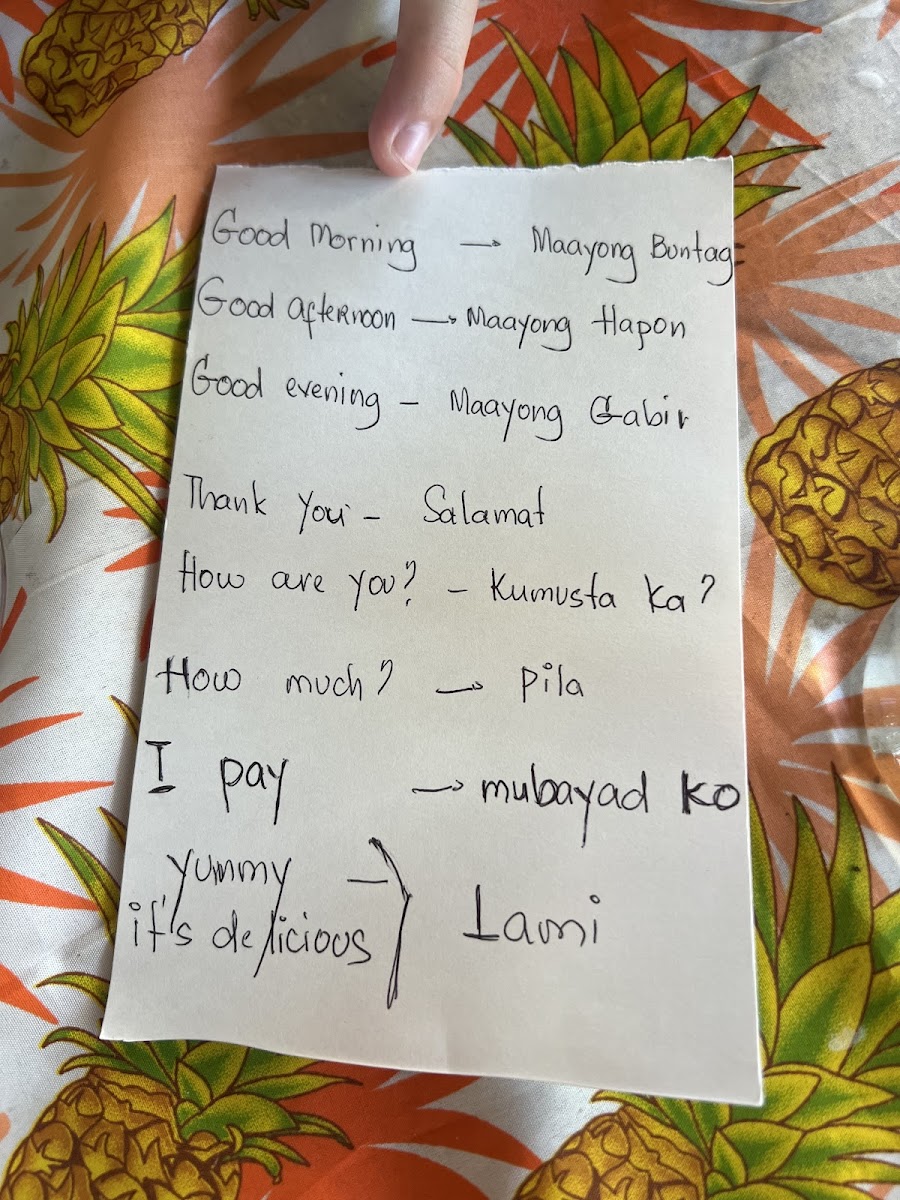 Good Morning → Maayong Buntag
Good afternoon → Maayong Hapon
Good evening - Maayong Gabii
Thank you - Salamat
How are you? - Kumusta ka?
How much? → pila
I pay → mubayad ko
yummy -
it's delicious } Lami